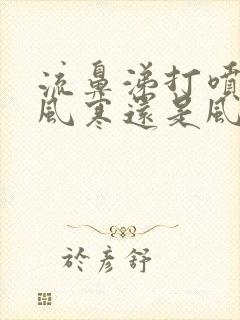 流鼻涕打噴
風寒還是風
於彥舒